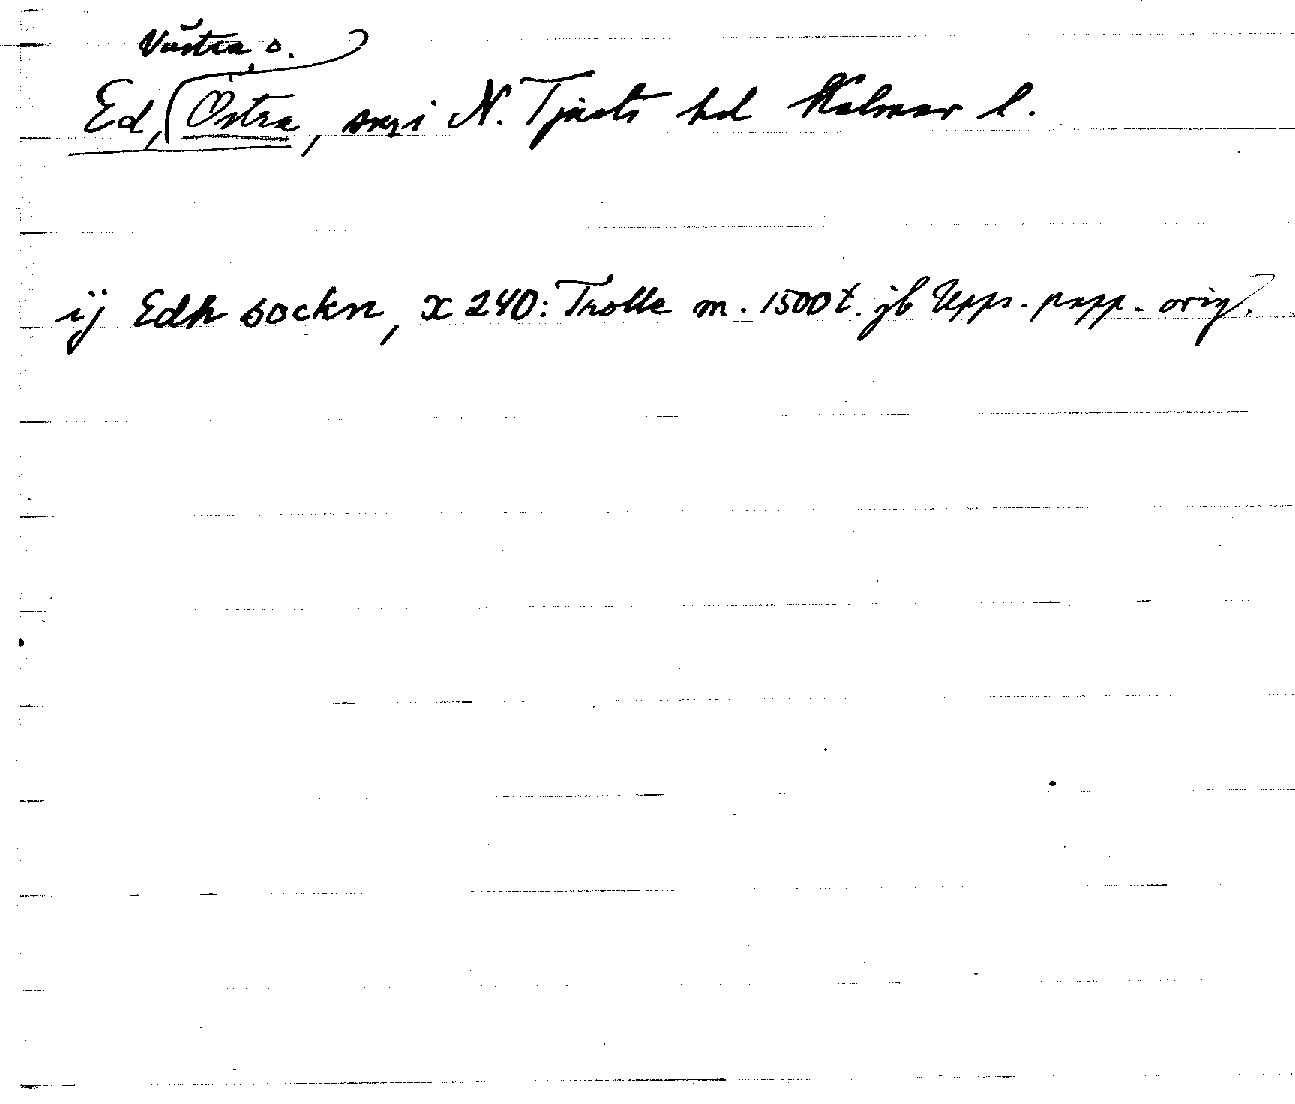 Västra o.
Ed, Östra, snr i N. Tjusts hd Kalmar l.
ij Edh sockn, x 240: Trolle m. 1500 t. jb Upps. papp. orig.